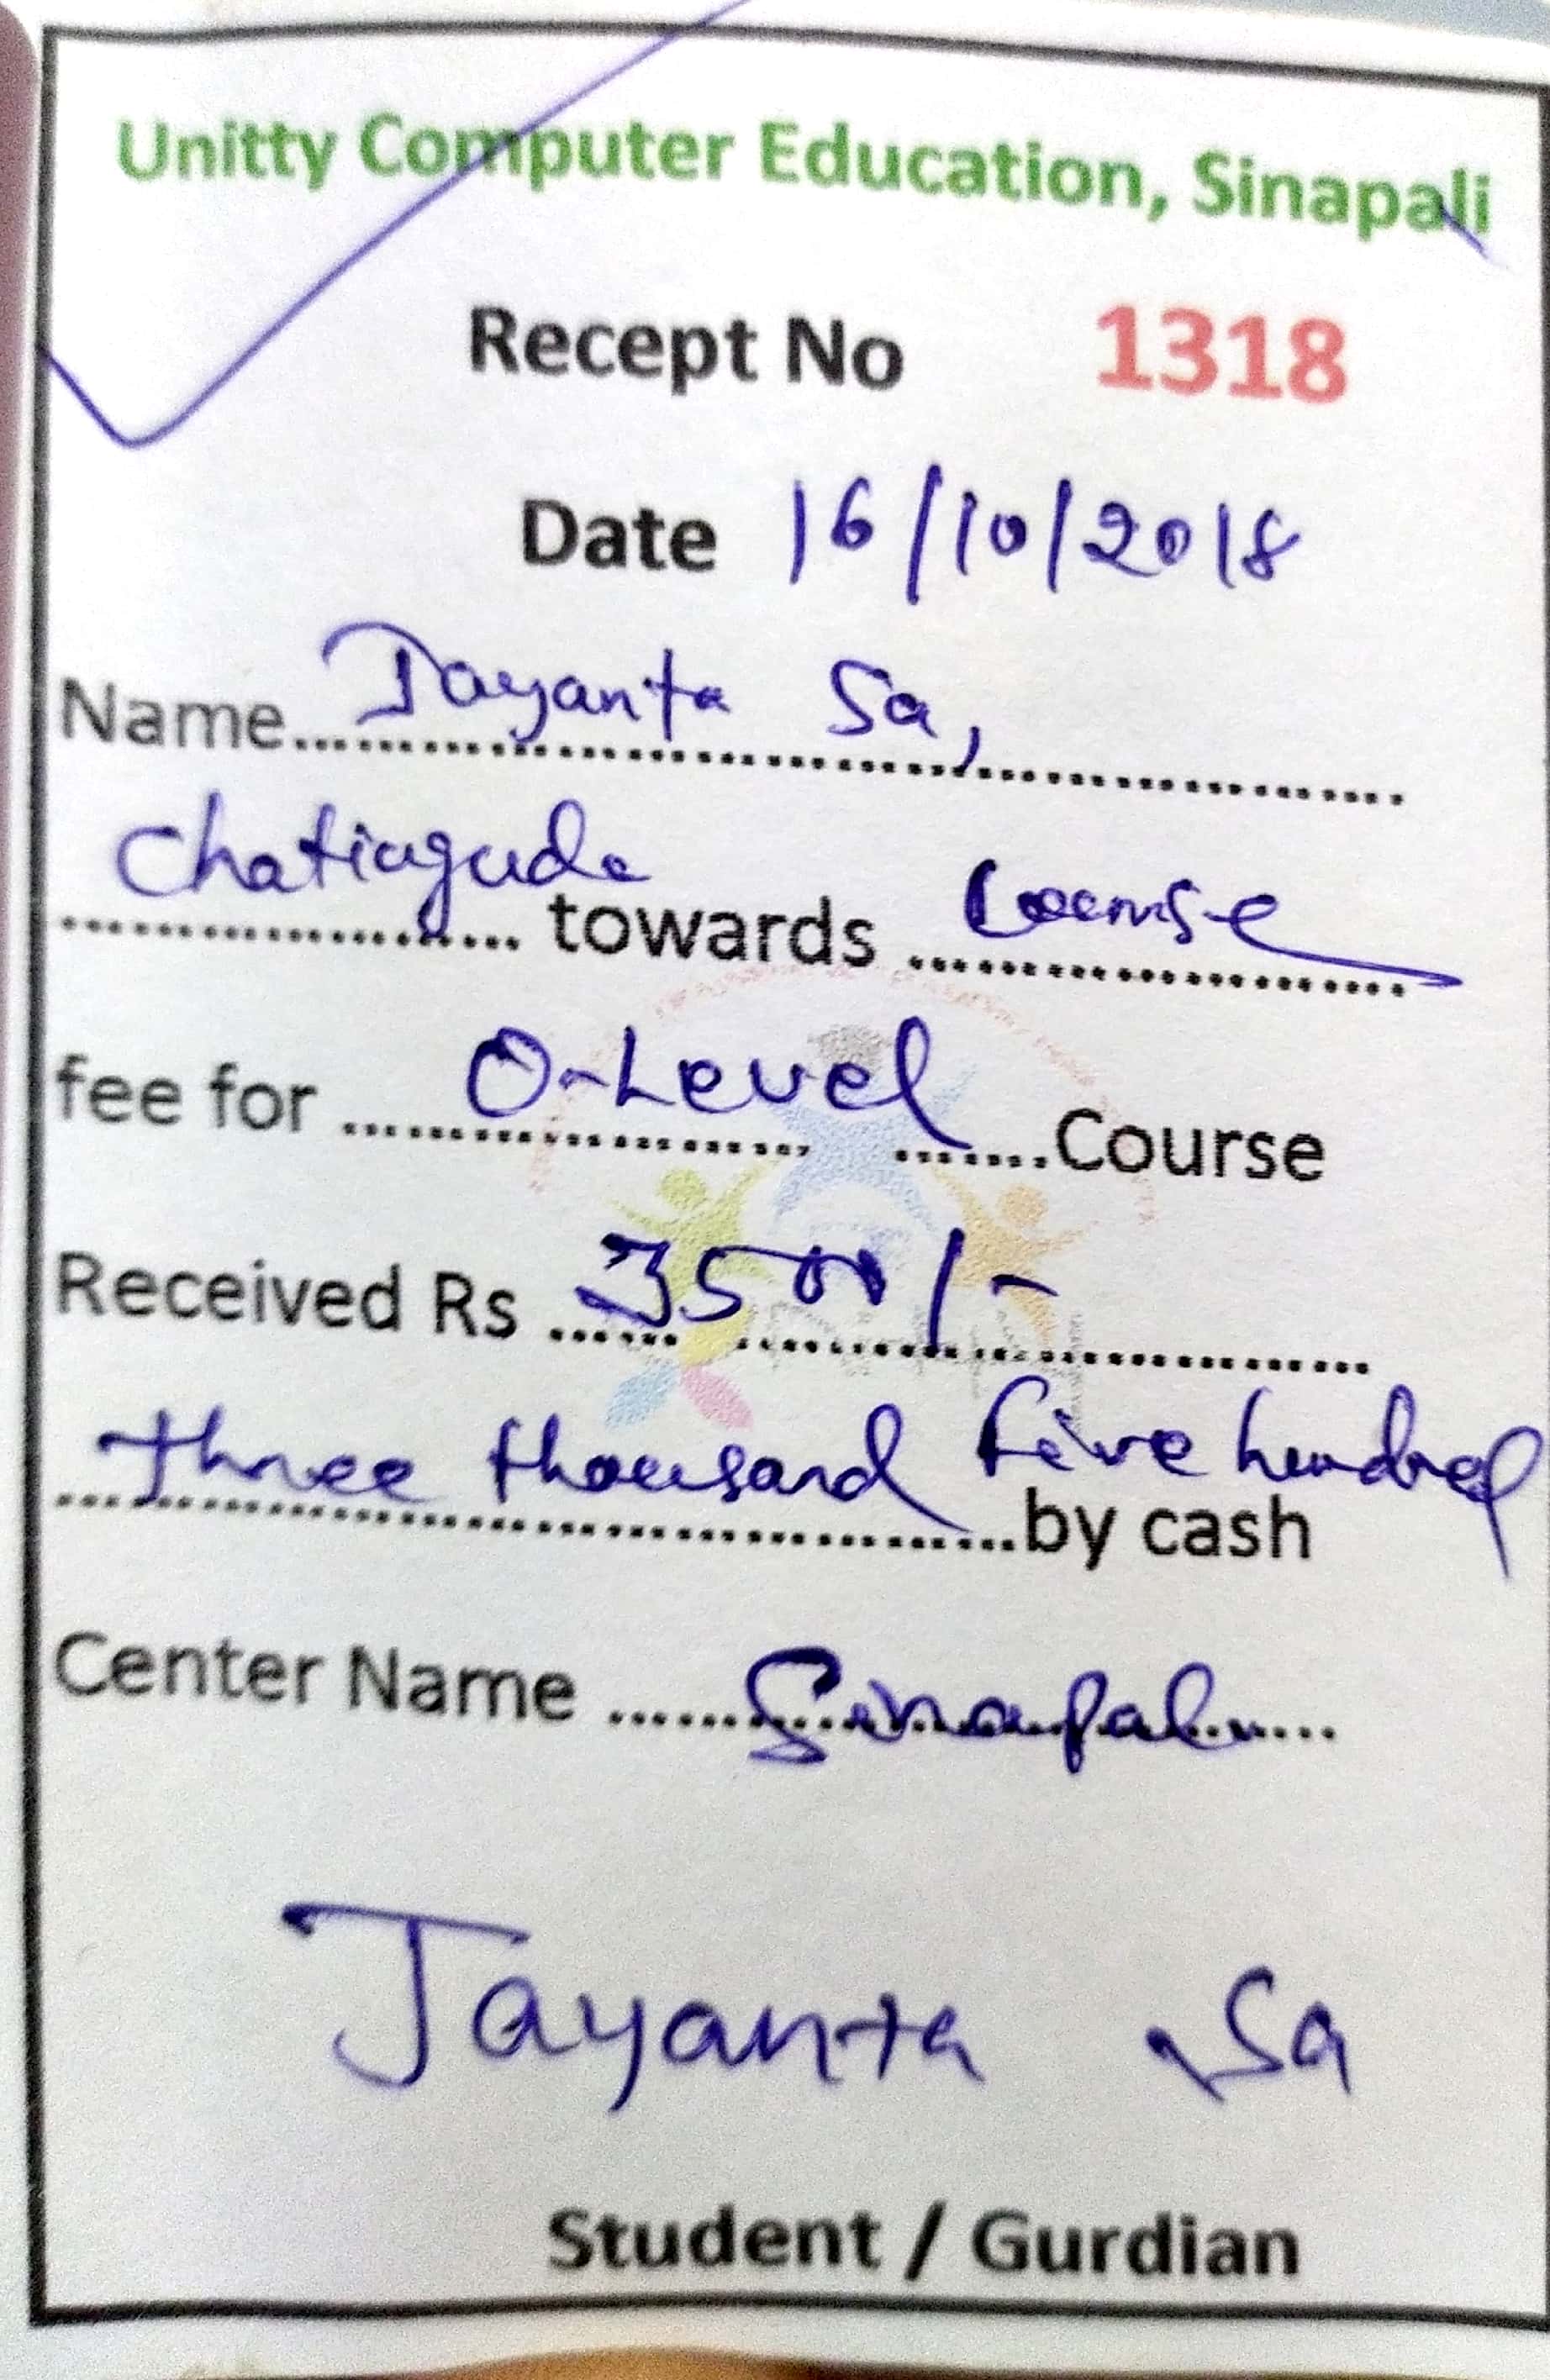 Unitty Computer Education, Sinapali
Recept No 1318
Date 16/10/2018
Name Jayanta Sa,
Chatiaguda towards Course
fee for O-Level Course
Received Rs 3500/-
three thousand five hundred by cash
Center Name Sinapali
Jayanta Sa
Student / Gurdian